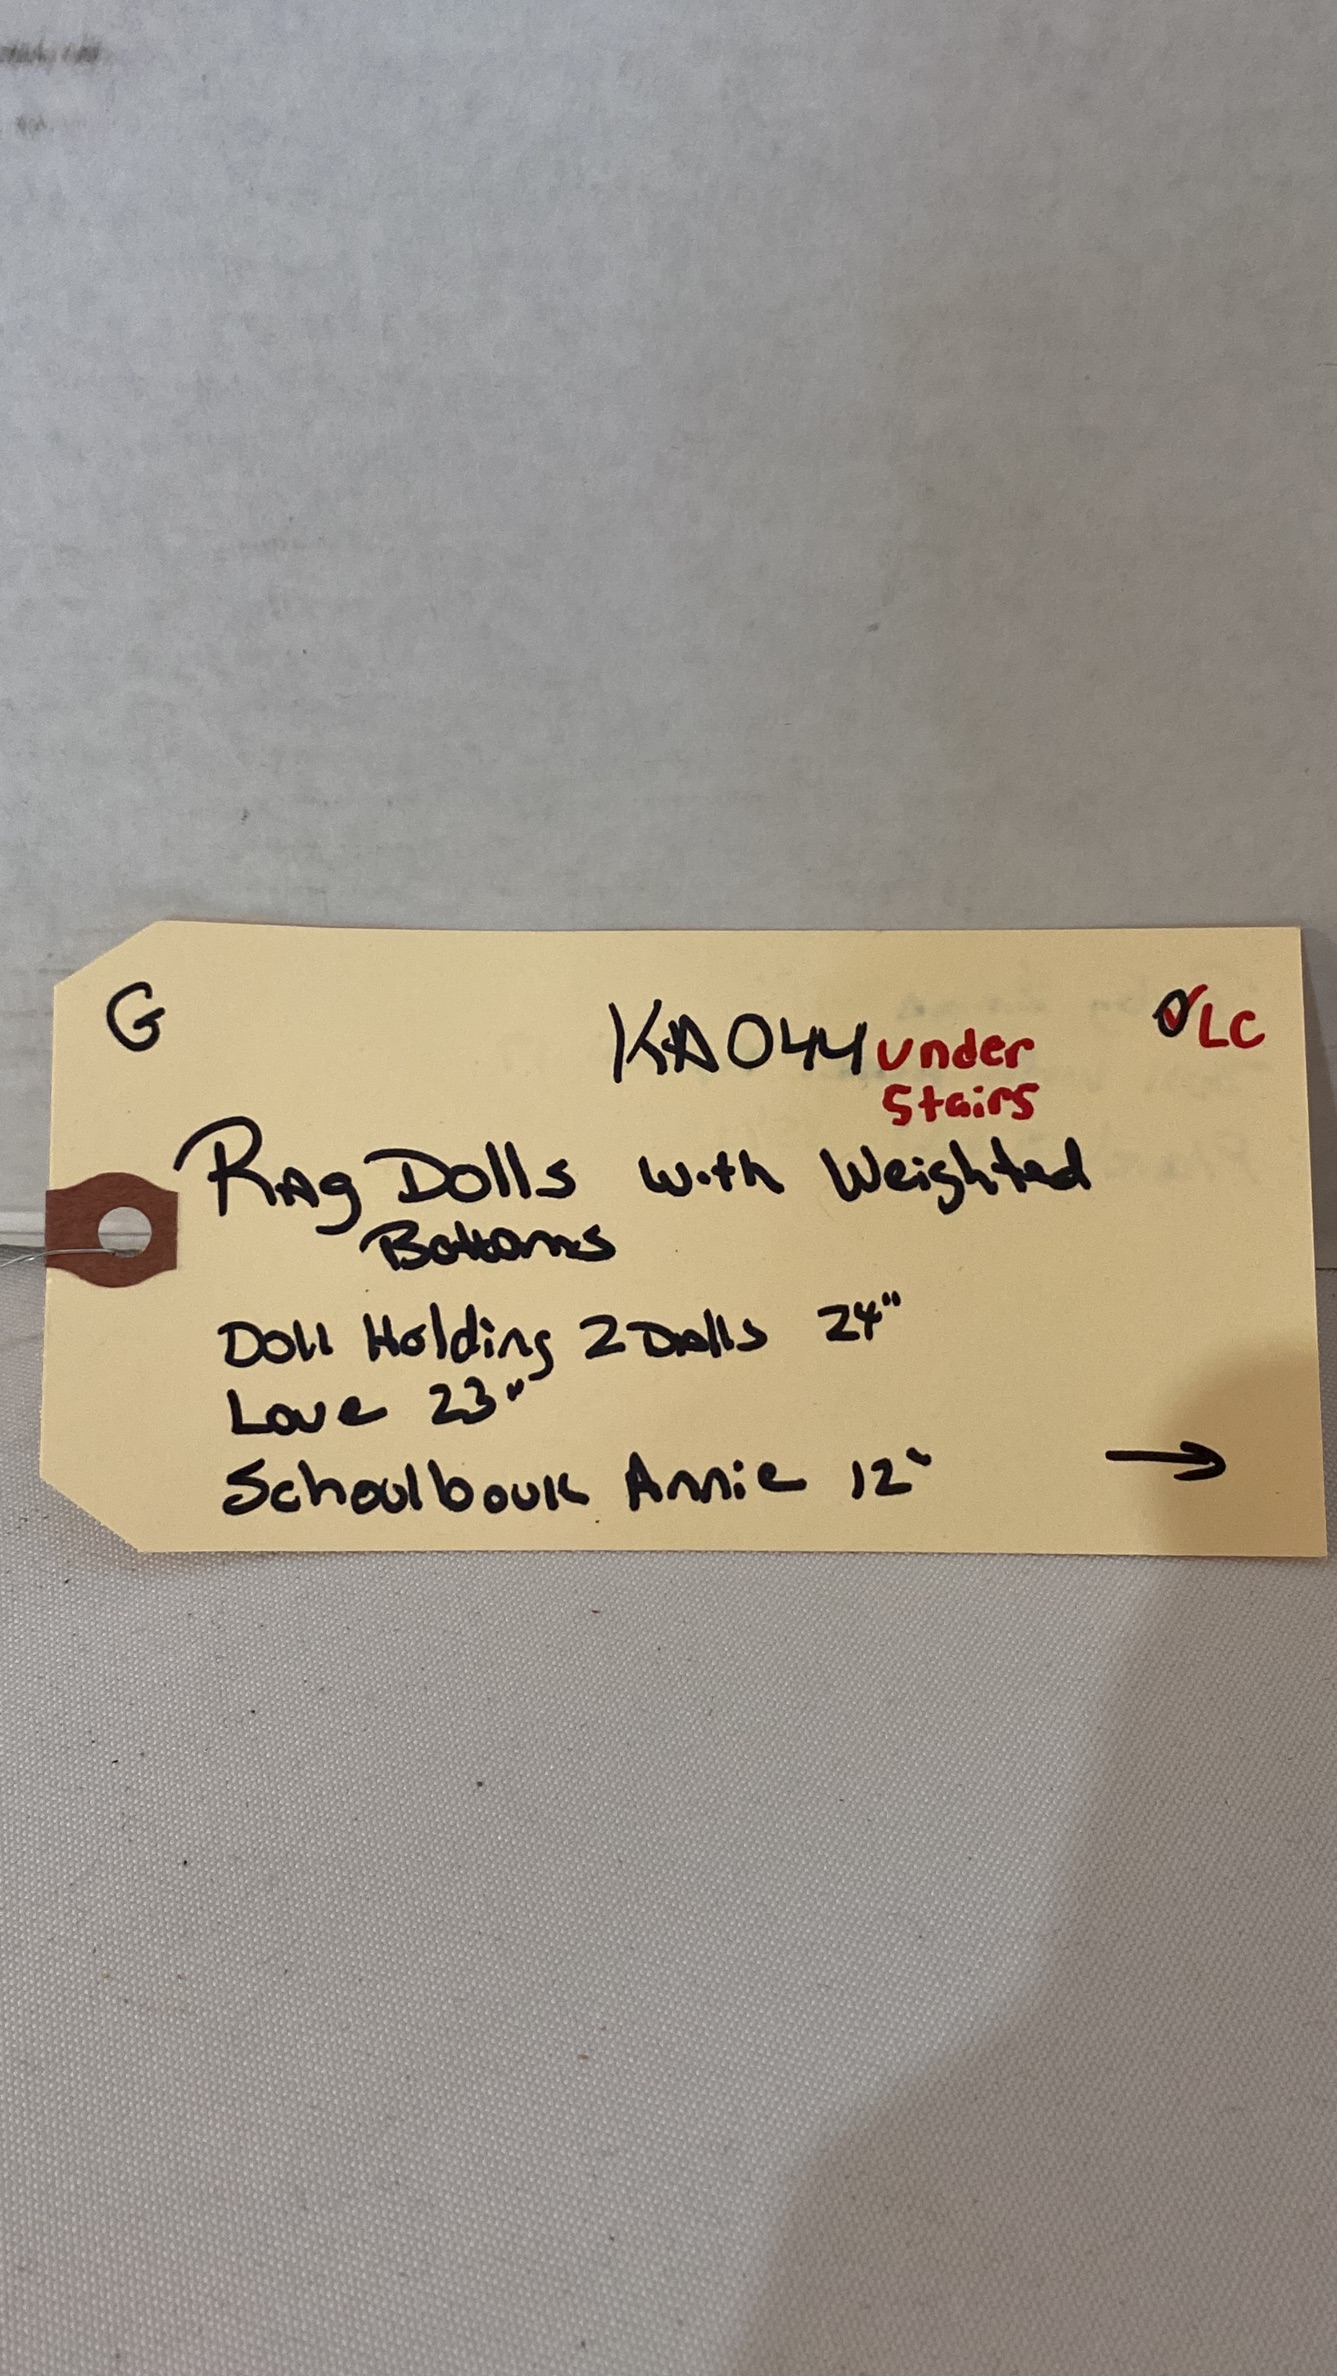 G
KA044 under
stairs
LC
Rag Dolls with Weighted
Bottoms
Doll Holding 2 Dolls 24"
Love 23"
Schoolbook Annie 12"